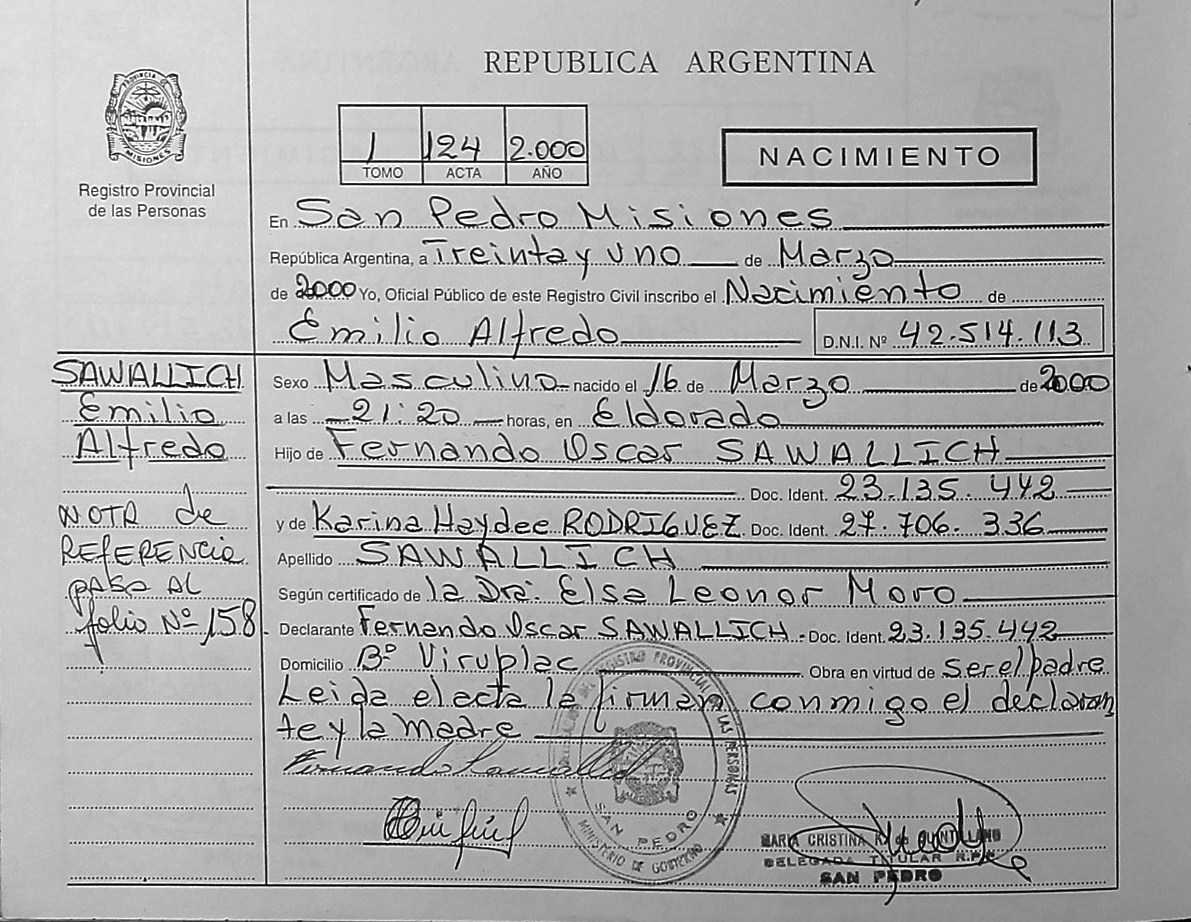 REPUBLICA ARGENTINA
PROVINCIA DE MISIONES
Registro Provincial
de las Personas
1 124 2.000
TOMO ACTA AÑO
NACIMIENTO
En San Pedro Misiones
República Argentina, a Treinta y uno de Marzo
de 2000 Yo, Oficial Público de este Registro Civil inscribo el Nacimiento de
Emilio Alfredo D.N.I. Nº 42.514.113
SAWALLICH
Emilio
Alfredo
NOTA de
REFERENCIA
PASA AL
folio Nº 158
Sexo Masculino nacido el 16 de Marzo de 2000
a las 21:20 horas, en Eldorado
Hijo de Fernando Oscar SAWALLICH
Doc. Ident. 23.135.442
y de Karina Haydee RODRIGUEZ Doc. Ident. 27.706.336
Apellido SAWALLICH
Según certificado de la Dra. Elsa Leonor Moro
Declarante Fernando Oscar SAWALLICH - Doc. Ident. 23.135.442
Domicilio Bº Viruplac Obra en virtud de ser el padre
Leida el acta la firman conmigo el declaran
te y la madre
Fernando Sawallich
REGISTRO PROVINCIAL DE LAS PERSONAS
SAN PEDRO
MINISTERIO DE GOBIERNO
MARIA CRISTINA
DELEGADA TITULAR R.P.P.
SAN PEDRO